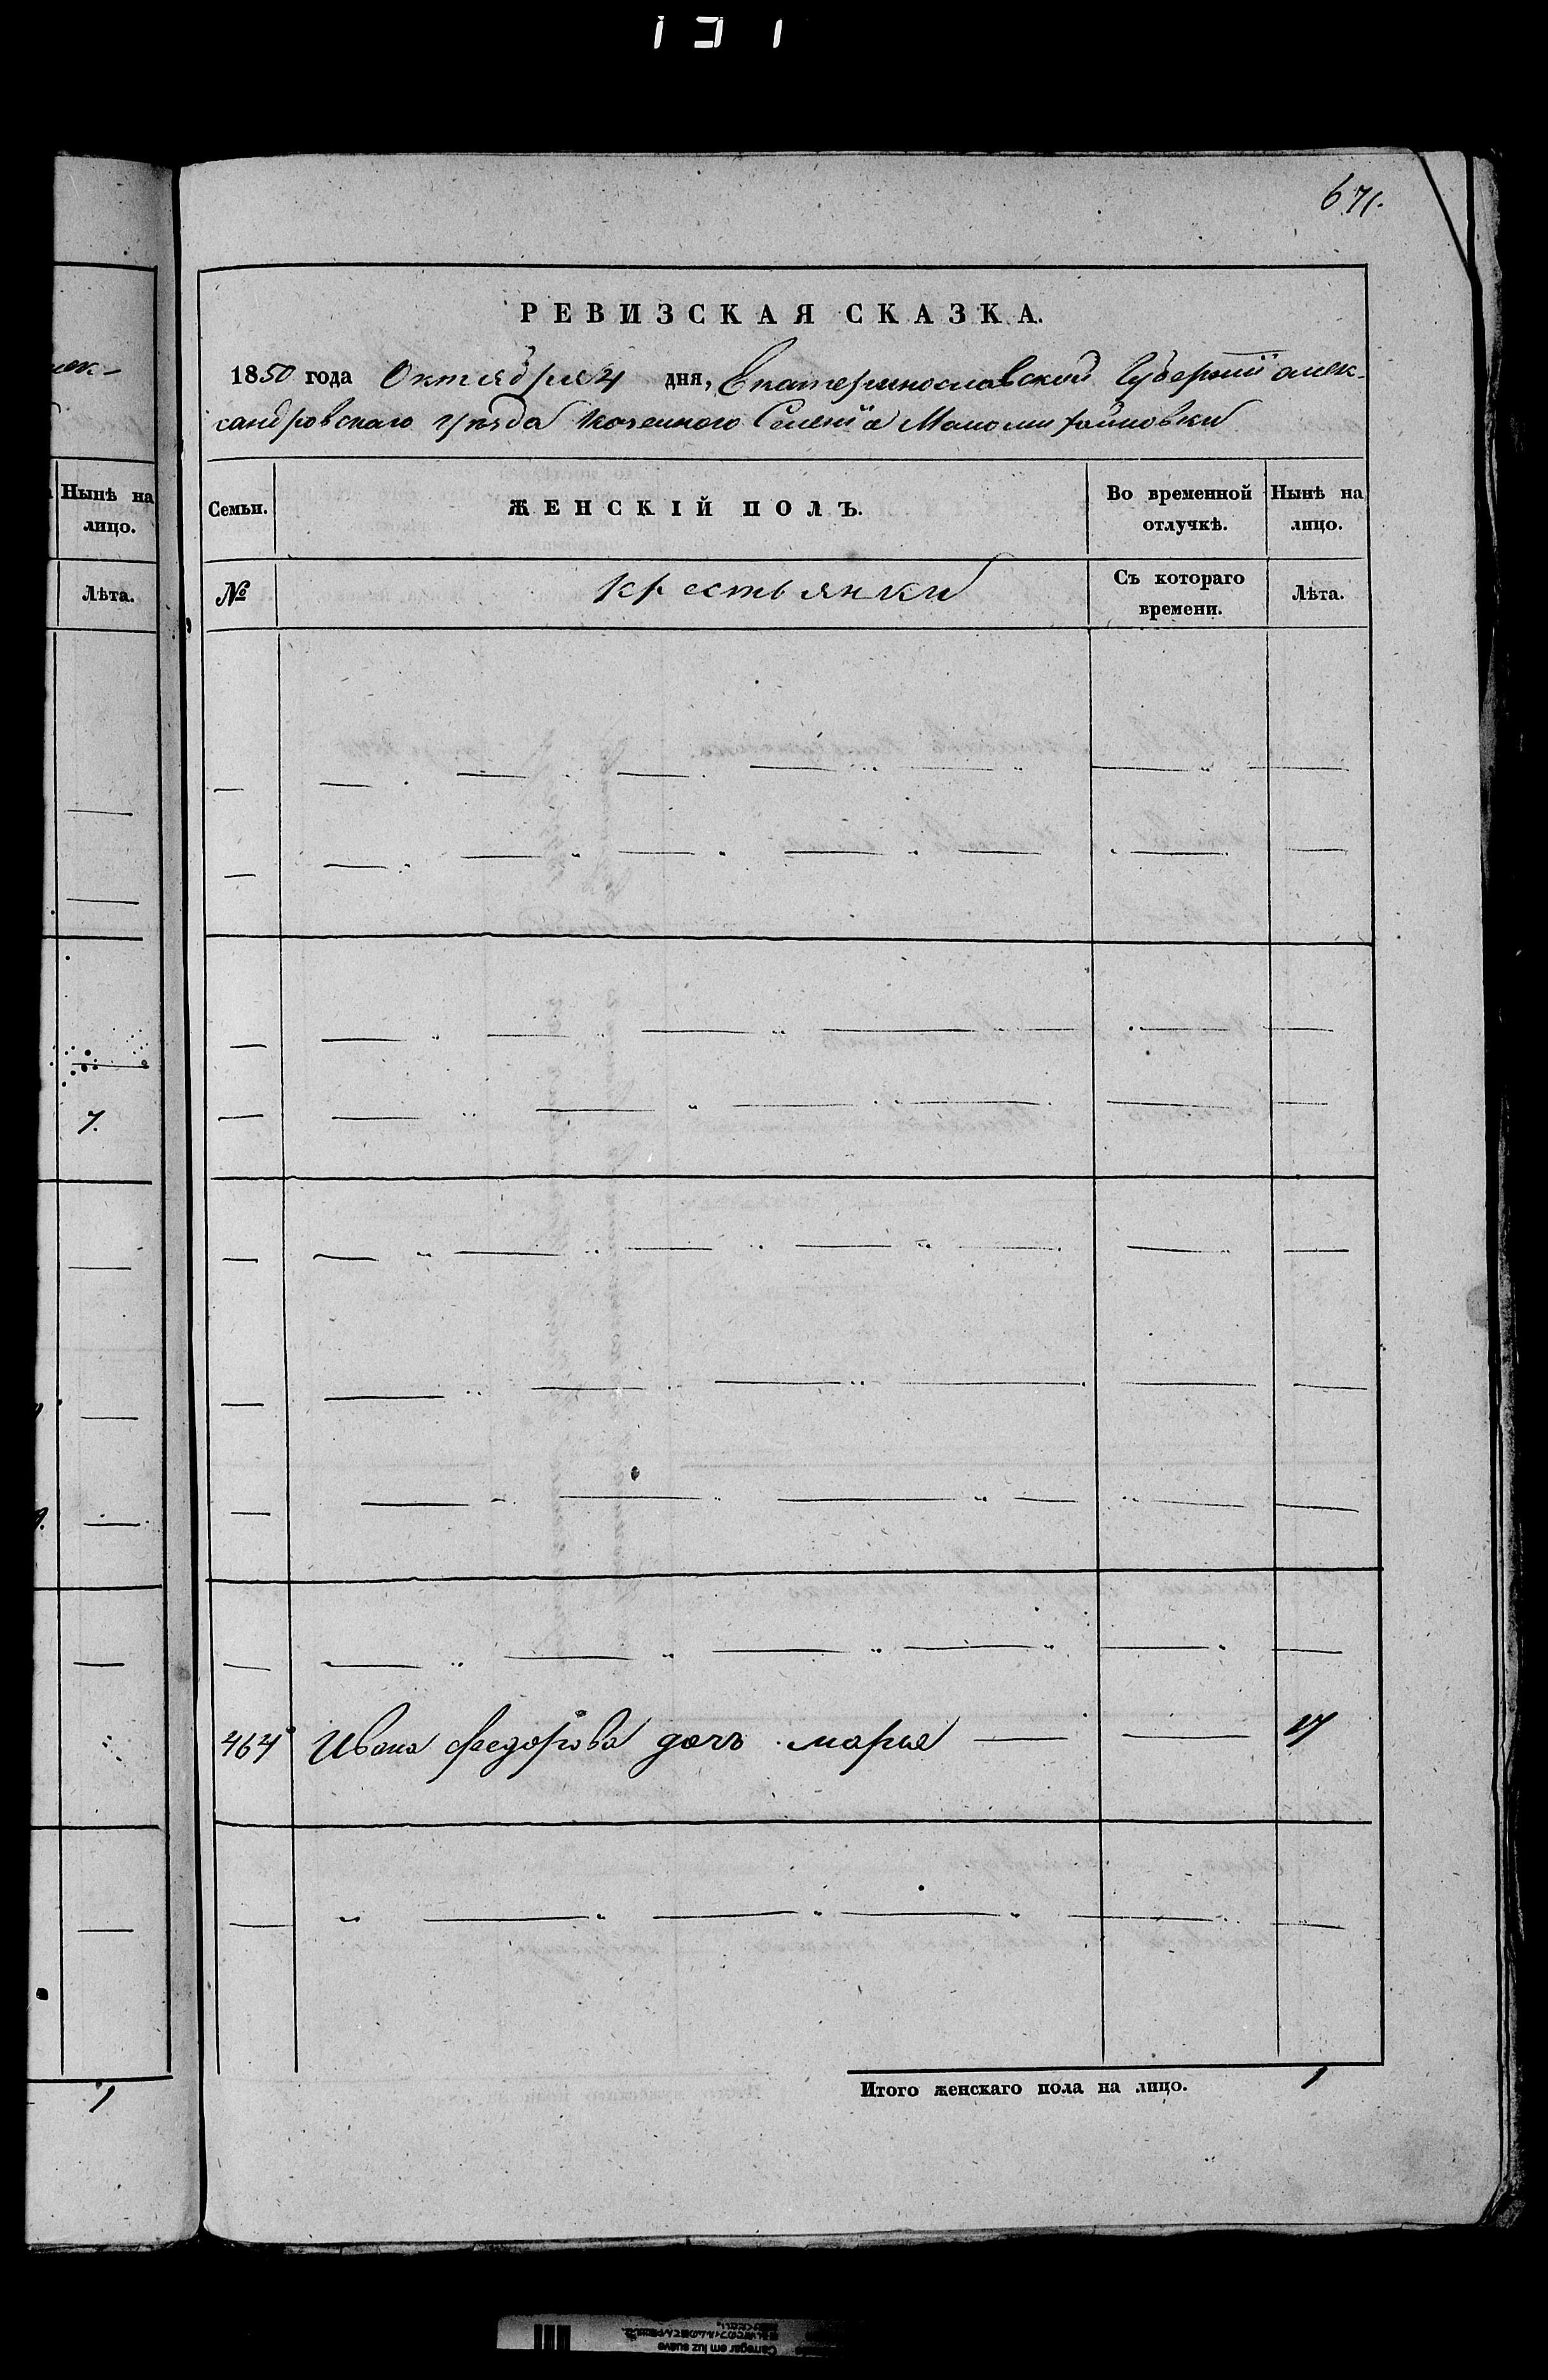 671.
РЕВИЗСКАЯ СКАЗКА.
1850 года Октября 4 дня, Екатеринославской Губернии алек-
сандровскаго уѣзда Казенного Селенія Маломихайловки
Семьи. ЖЕНСКІЙ ПОЛЪ. Во временной отлучкѣ. Нынѣ на лицо.
№ крестьянки Съ котораго времени. Лѣта.
464 Ивана Федорова дочь марья 17
Итого женскаго пола на лицо. 1
Нынѣ на
лицо.
Лѣта.
7.
1